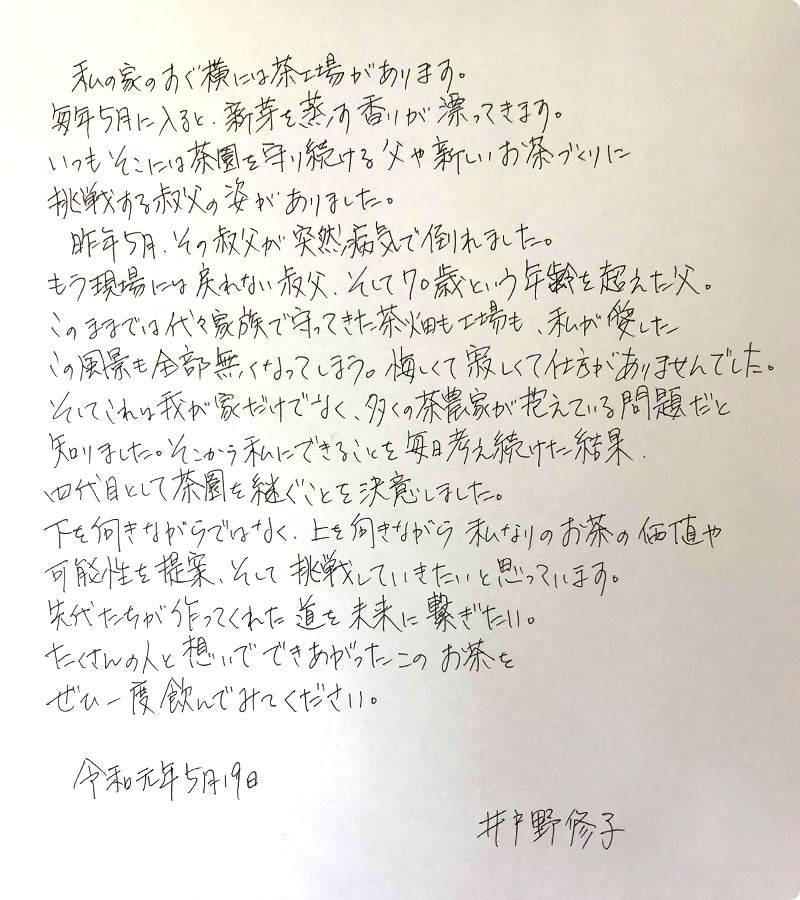 私の家のすぐ横には茶工場があります。
毎年5月に入ると、新芽を蒸す香りが漂ってきます。
いつもそこには茶園を守り続ける父や新しいお茶づくりに
挑戦する叔父の姿がありました。
昨年5月、その叔父が突然病気で倒れました。
もう現場には戻れない叔父、そして70歳という年齢を超えた父。
このままでは代々家族で守ってきた茶畑も工場も、私が愛した
この風景も全部無くなってしまう。悔しくて寂しくて仕方がありませんでした。
そしてこれは我が家だけでなく、多くの茶農家が抱えている問題だと
知りました。そこから私にできることを毎日考え続けた結果、
四代目として茶園を継ぐことを決意しました。
下を向きながらではなく、上を向きながら私なりのお茶の価値や
可能性を提案、そして挑戦していきたいと思っています。
先代たちが作ってくれた道を未来に繋ぎたい。
たくさんの人と想いでできあがったこのお茶を
ぜひ一度飲んでみてください。
令和元年5月19日
井戸野修子